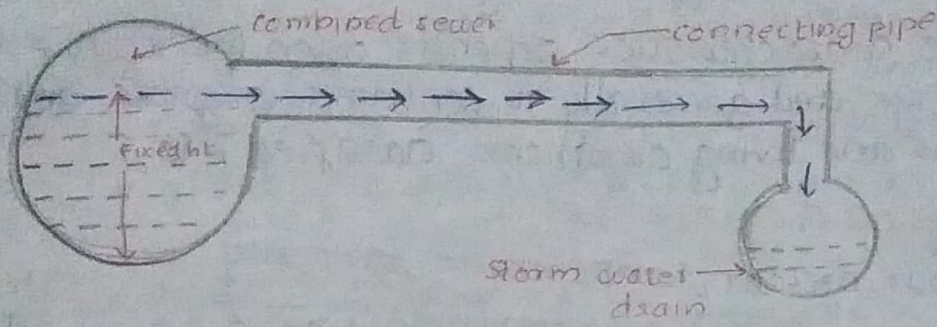 combined sewer
connecting pipe
Fixed ht
storm water
drain